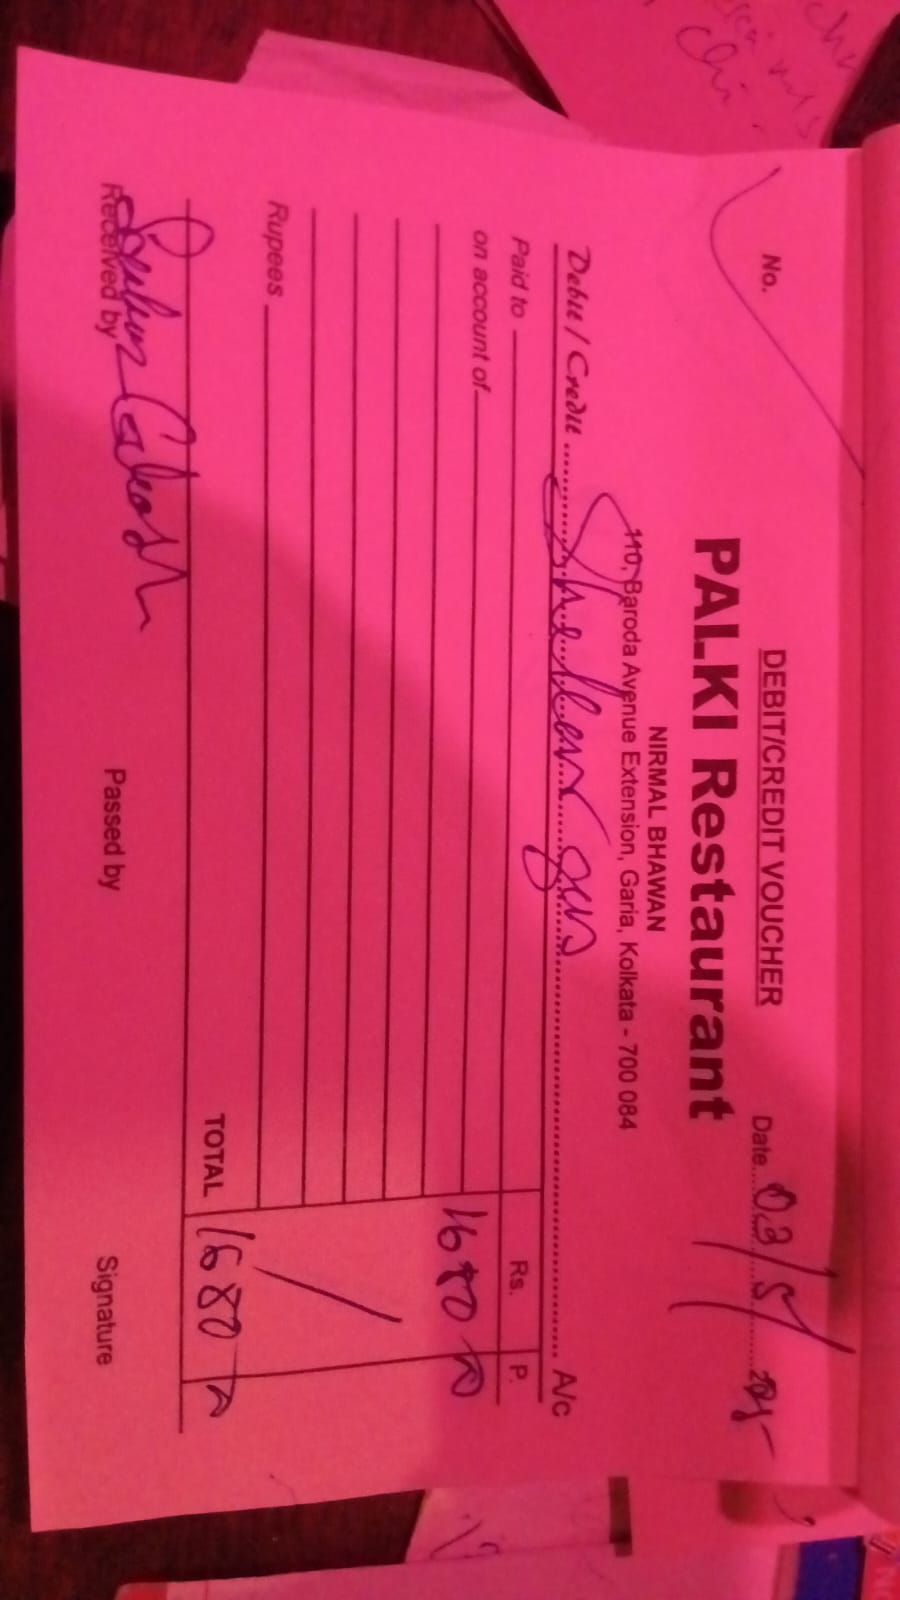 DEBIT/CREDIT VOUCHER
No.
Date 03/5/ 2015
PALKI Restaurant
NIRMAL BHAWAN
110, Baroda Avenue Extension, Garia, Kolkata - 700 084
Debit / Credit A/c
Paid to Rs. P.
on account of
1680
Rupees
TOTAL 1680
Ghosh
Received by Passed by Signature